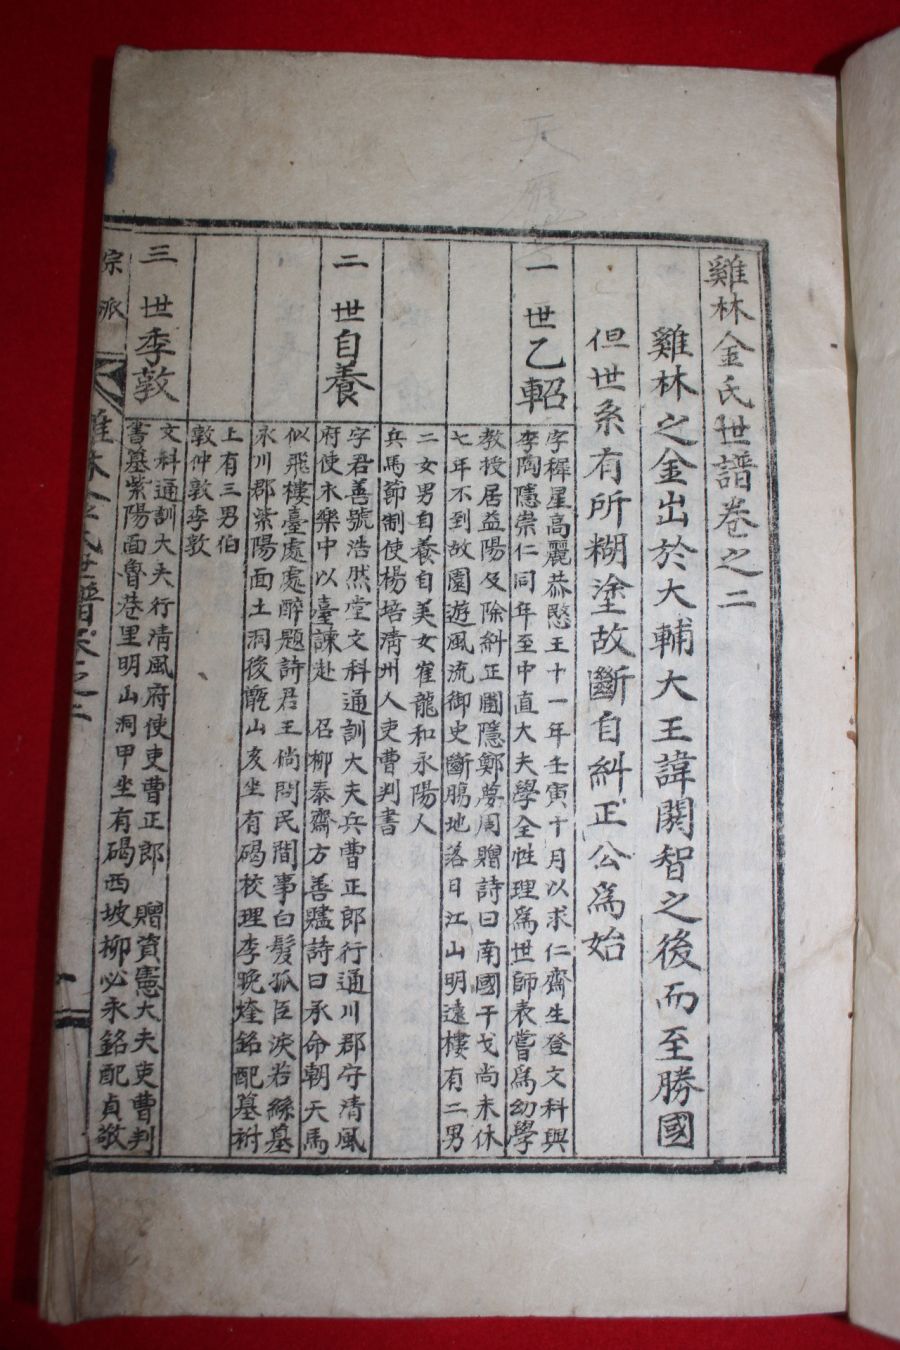 雞林金氏世譜卷之二
雞林之金出於大輔大王諱閼智之後而至勝國
但世系有所糊塗故斷自糾正公爲始
一世乙軺
字樨星高麗恭愍王十一年壬寅十月以求仁齋生登文科與
李陶隱崇仁同年至中直大夫學全性理爲世師表嘗爲幼學
教授居益陽及除糾正圃隱鄭夢周贈詩曰南國干戈尚未休
七年不到故園遊風流御史斷膓地落日江山明遠樓有二男
二女男自養自美女崔龍和永陽人
兵馬節制使楊培淸州人吏曹判書
二世自養
字君善號浩然堂文科通訓大夫兵曹正郎行通川郡守清風
府使木樂中以 臺諫赴 召柳泰齋方善贐詩曰承命朝天馬
似飛樓臺處處醉題詩君王倘問民間事白髮孤臣淚若絲墓
永川郡紫陽面土洞後麓山亥坐有碣校理李晚煃銘配墓祔
上有三男伯
敦仲敦季敦
三世季敦
文科通訓大夫行清風府使吏曹正郎 贈資憲大夫吏曹判
書墓紫陽面魯巷里明山洞甲坐有碣西坡柳必永銘配貞敬
雞林金氏世譜卷之二
宗派
一